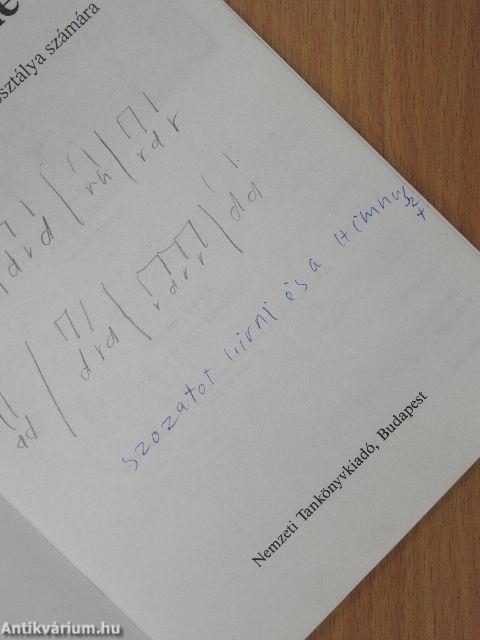 osztálya számára
drd | rh | rdr
dd | drd | rdrr | dd
szozatot kiirni és a Himnuszt
Nemzeti Tankönyvkiadó, Budapest
Antikvárium.hu